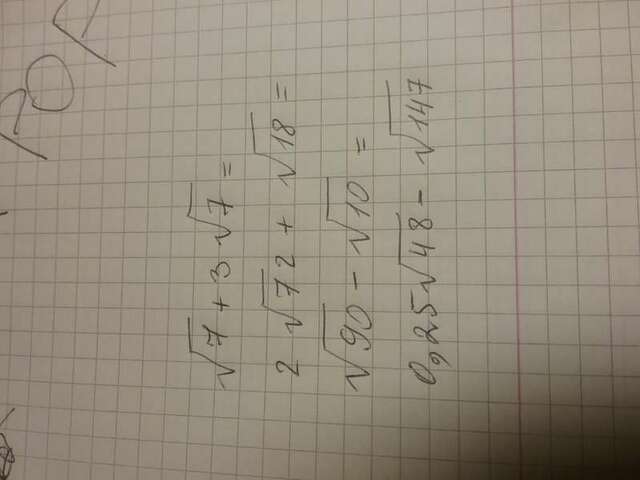 РОГ
√7 + 3 √7 =
2 √72 + √18 =
√90 - √10 =
0,25√48 - √147